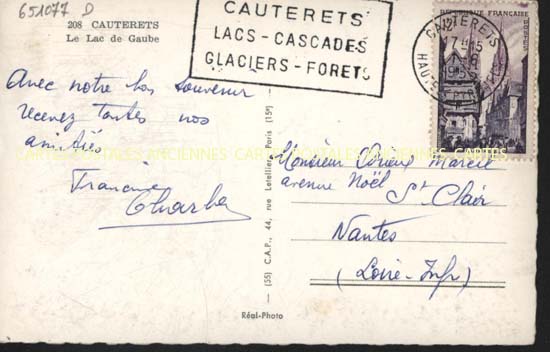 651077 D
208 CAUTERETS
Le Lac de Gaube
CAUTERETS
LACS - CASCADES
GLACIERS - FORETS
CAUTERETS
HAUTES
RÉPUBLIQUE FRANÇAISE
POSTES
Avec notre bon souvenir
recevez toutes nos
amitiés
CARTES POSTALES ANCIENNES CARTES POSTALES ANCIENNES CARTES
Monsieur
avenue Noël
St Clair
Nantes
(Loire-Infr)
(55) C.A.P., 44, rue Letellier, Paris (15e)
Réal-Photo